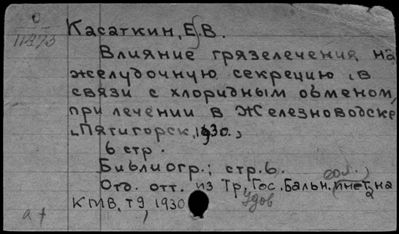 11873
Касаткин, Е.В.
Влияние грязелечения на
желудочную секрецию в
связи с хлоридным обменом
при лечении в Железноводске
Пятигорск, 1930.,
6 стр.
Библиогр.: стр. 6.
Отд. отт. из Тр. Гос. Бальн. инст. на
КМВ, т 9, 1930